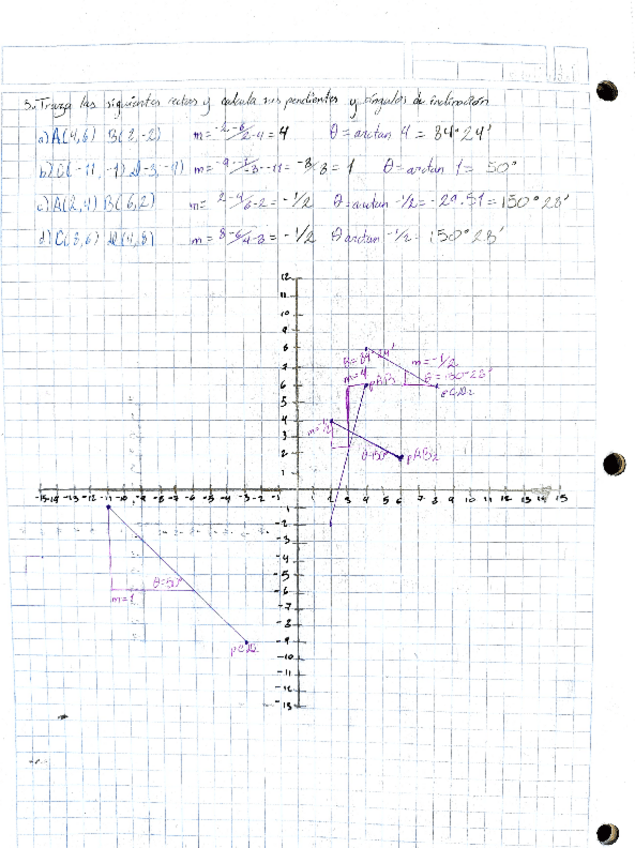 5. Traza las siguientes rectas y calcula sus pendientes y ángulos de inclinación
a) A(4,6) B(2,-2) m= -2-6/2-4 = 4 θ = arctan 4 = 84°24'
b) C(-11,-1) D(-3,-9) m= -9--1/-3--11 = -8/8 = 1 θ = arctan 1 = 50°
c) A(2,4) B(6,2) m= 2-4/6-2 = -1/2 θ = arctan -1/2 = -29.51 = 150°28'
d) C(8,6) D(4,8) m= 8-6/4-8 = -1/2 θ arctan -1/2 = 150°28'
12
9
8
θ=84°24' m=-1/2
m=4 θ=150°28'
6 pAB
5 pCD2
4
m=-1/2
3
2 θ=150° pAB2
1
-15 -14 -13 -12 -11 -10 -9 -8 -7 -6 -5 -4 -3 -2 -1 1 2 3 4 5 6 7 8 9 10 11 12 13 14 15
-1
-2
-3
-4
-5
θ=50°
-6
m=1
-7
-8
-9
pCD
-10
-11
-12
-13